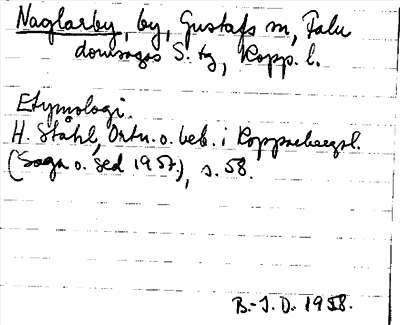 Naglarby, by, Gustafs sn, Falu
domsagas S. tg, Kopp. l.
Etymologi.
H. Ståhl, Ortn. o. beb. i Kopparbergsl.
(Saga o. Sed 1957), s. 58.
B.-J. D. 1958.